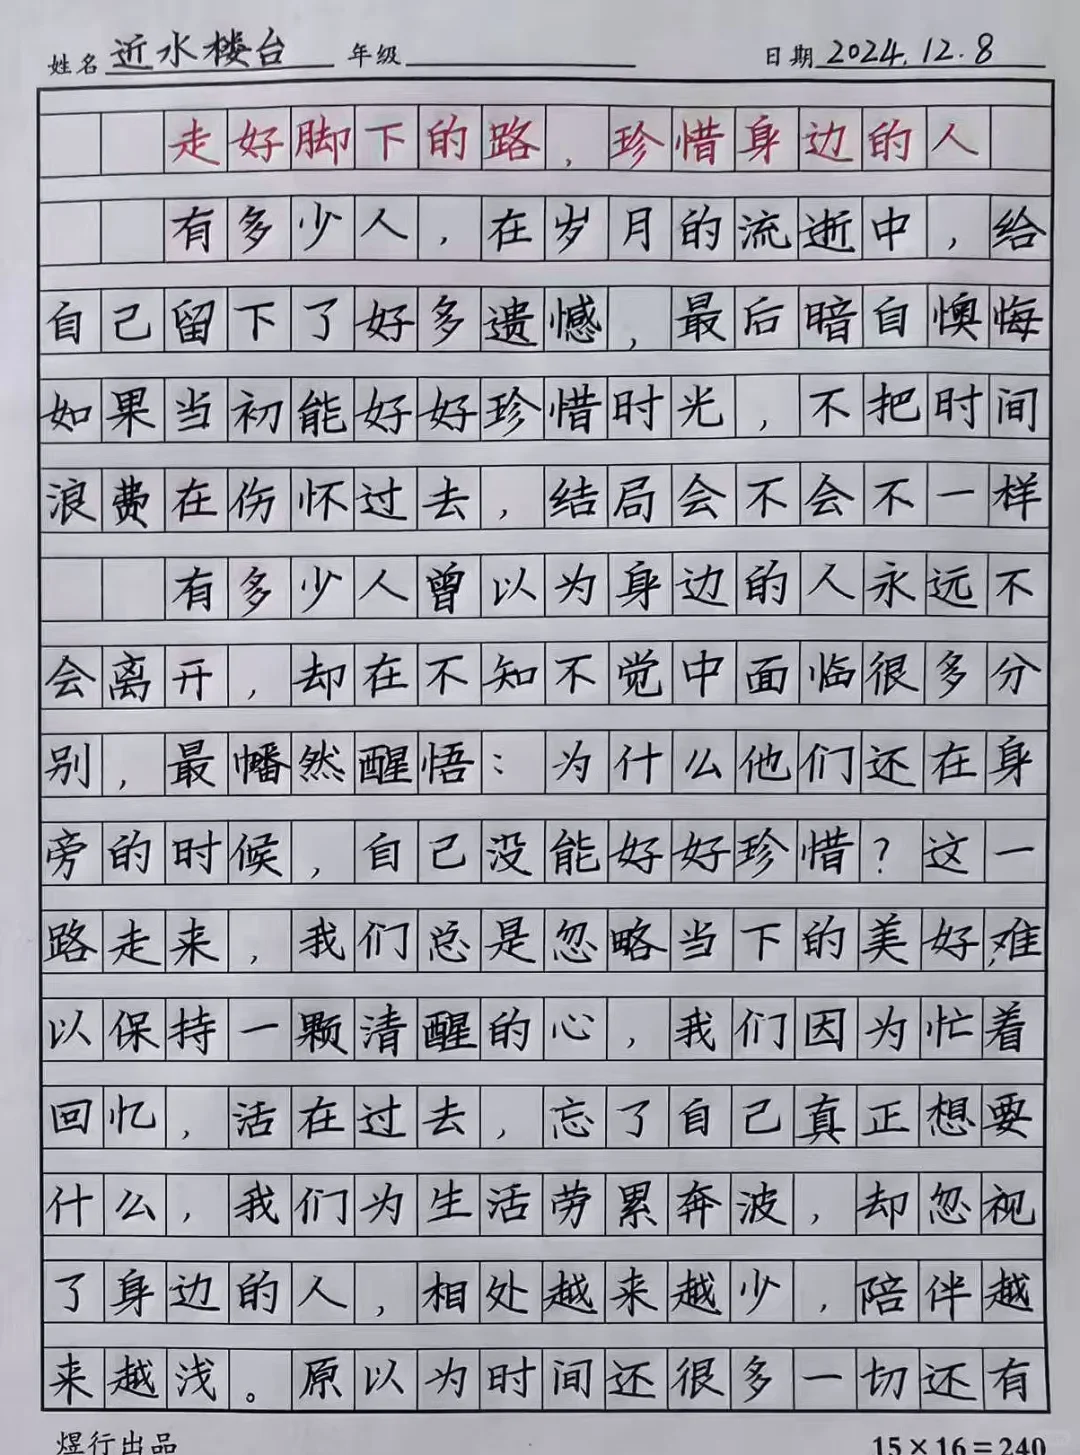 姓名 近水楼台 年级 日期 2024.12.8
走好脚下的路,珍惜身边的人
有多少人,在岁月的流逝中,给
自己留下了好多遗憾,最后暗自懊悔
如果当初能好好珍惜时光,不把时间
浪费在伤怀过去,结局会不会不一样
有多少人曾以为身边的人永远不
会离开,却在不知不觉中面临很多分
别,最幡然醒悟:为什么他们还在身
旁的时候,自己没能好好珍惜?这一
路走来,我们总是忽略当下的美好,难
以保持一颗清醒的心,我们因为忙着
回忆,活在过去,忘了自己真正想要
什么,我们为生活劳累奔波,却忽视
了身边的人,相处越来越少,陪伴越
来越浅。原以为时间还很多一切还有
煜行出品 15×16=240